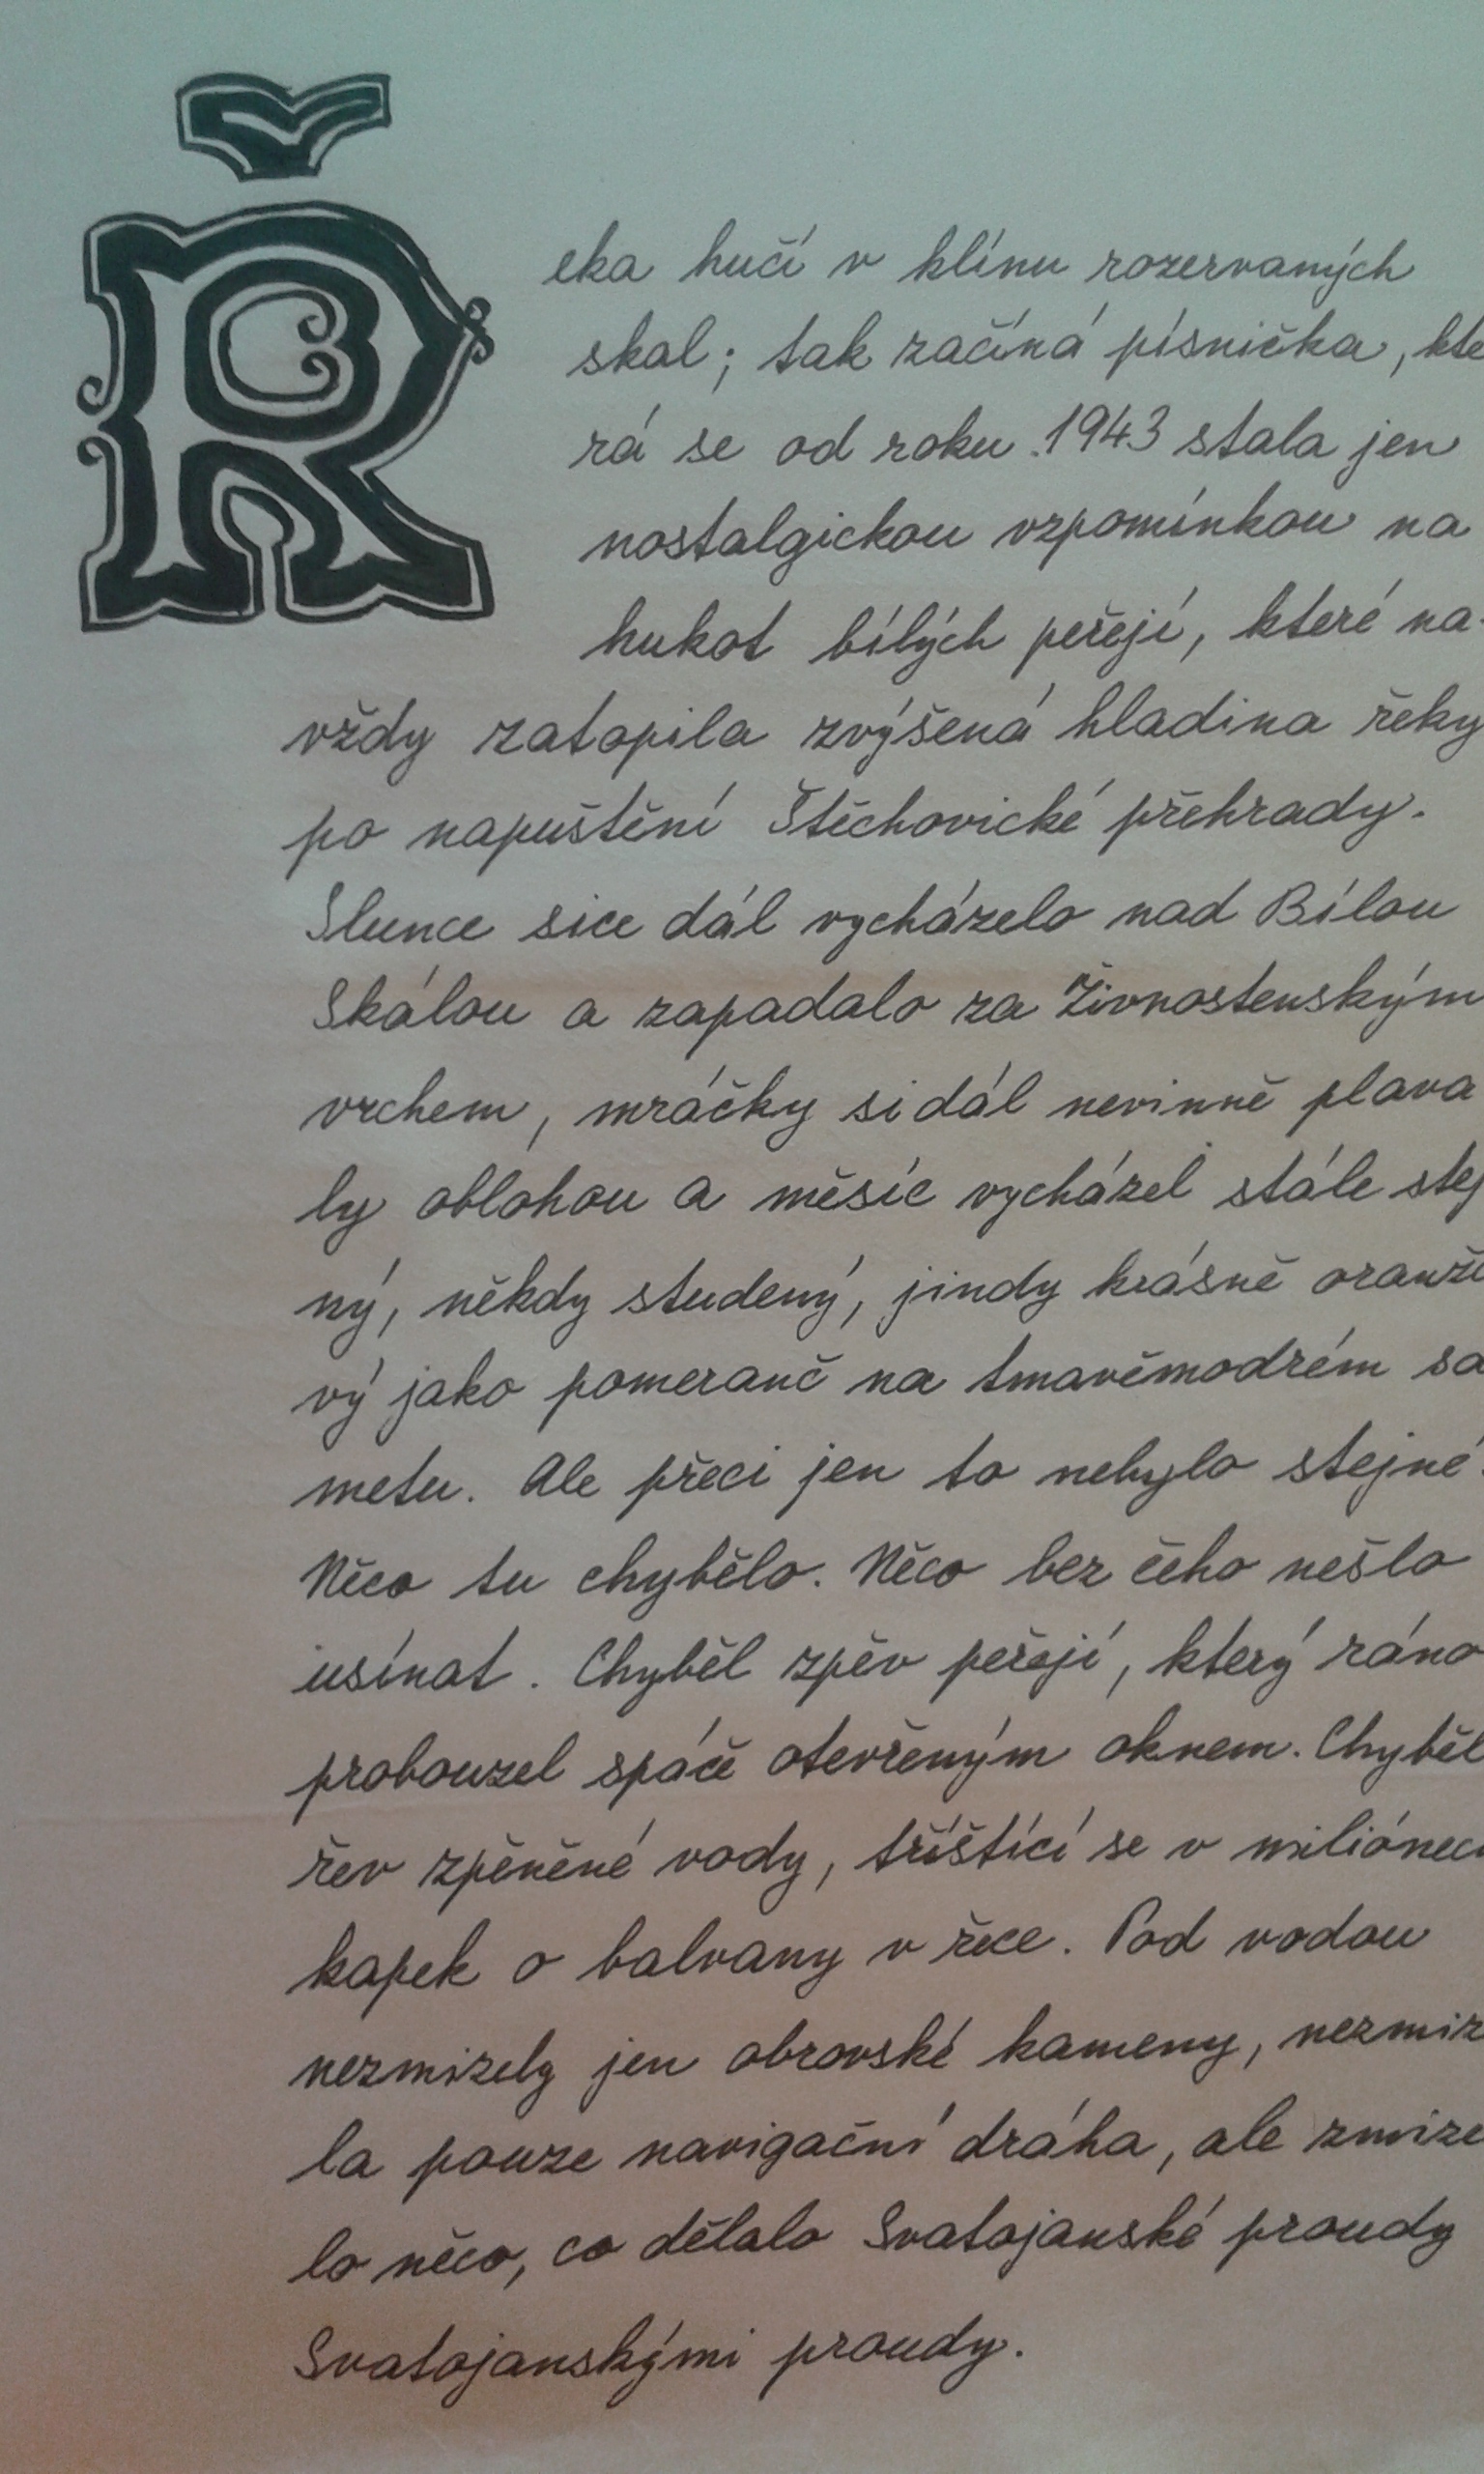 Řeka hučí v klínu rozervaných
skal; tak začíná písnička, kte
rá se od roku 1943 stala jen
nostalgickou vzpomínkou na
hukot bílých peřejí, které na-
vždy zatopila zvýšená hladina řeky
po napuštění Štěchovické přehrady.
Slunce sice dál vycházelo nad Bílou
Skálou a zapadalo za Živnostenským
vrchem, mráčky si dál nevinně plava
ly oblohou a měsíc vycházel stále stej
ný, někdy studený, jindy krásně oranžo
vý jako pomeranč na tmavěmodrém sa
metu. Ale přeci jen to nebylo stejné.
Něco tu chybělo. Něco bez čeho nešlo
usínat. Chyběl zpěv peřejí, který ráno
probouzel spáče otevřeným oknem. Chyběl
řev zpěněné vody, tříštící se v miliónech
kapek o balvany v řece. Pod vodou
nezmizely jen obrovské kameny, nezmiz
la pouze navigační dráha, ale zmize
lo něco, co dělalo Svatojanské proudy
Svatojanskými proudy.